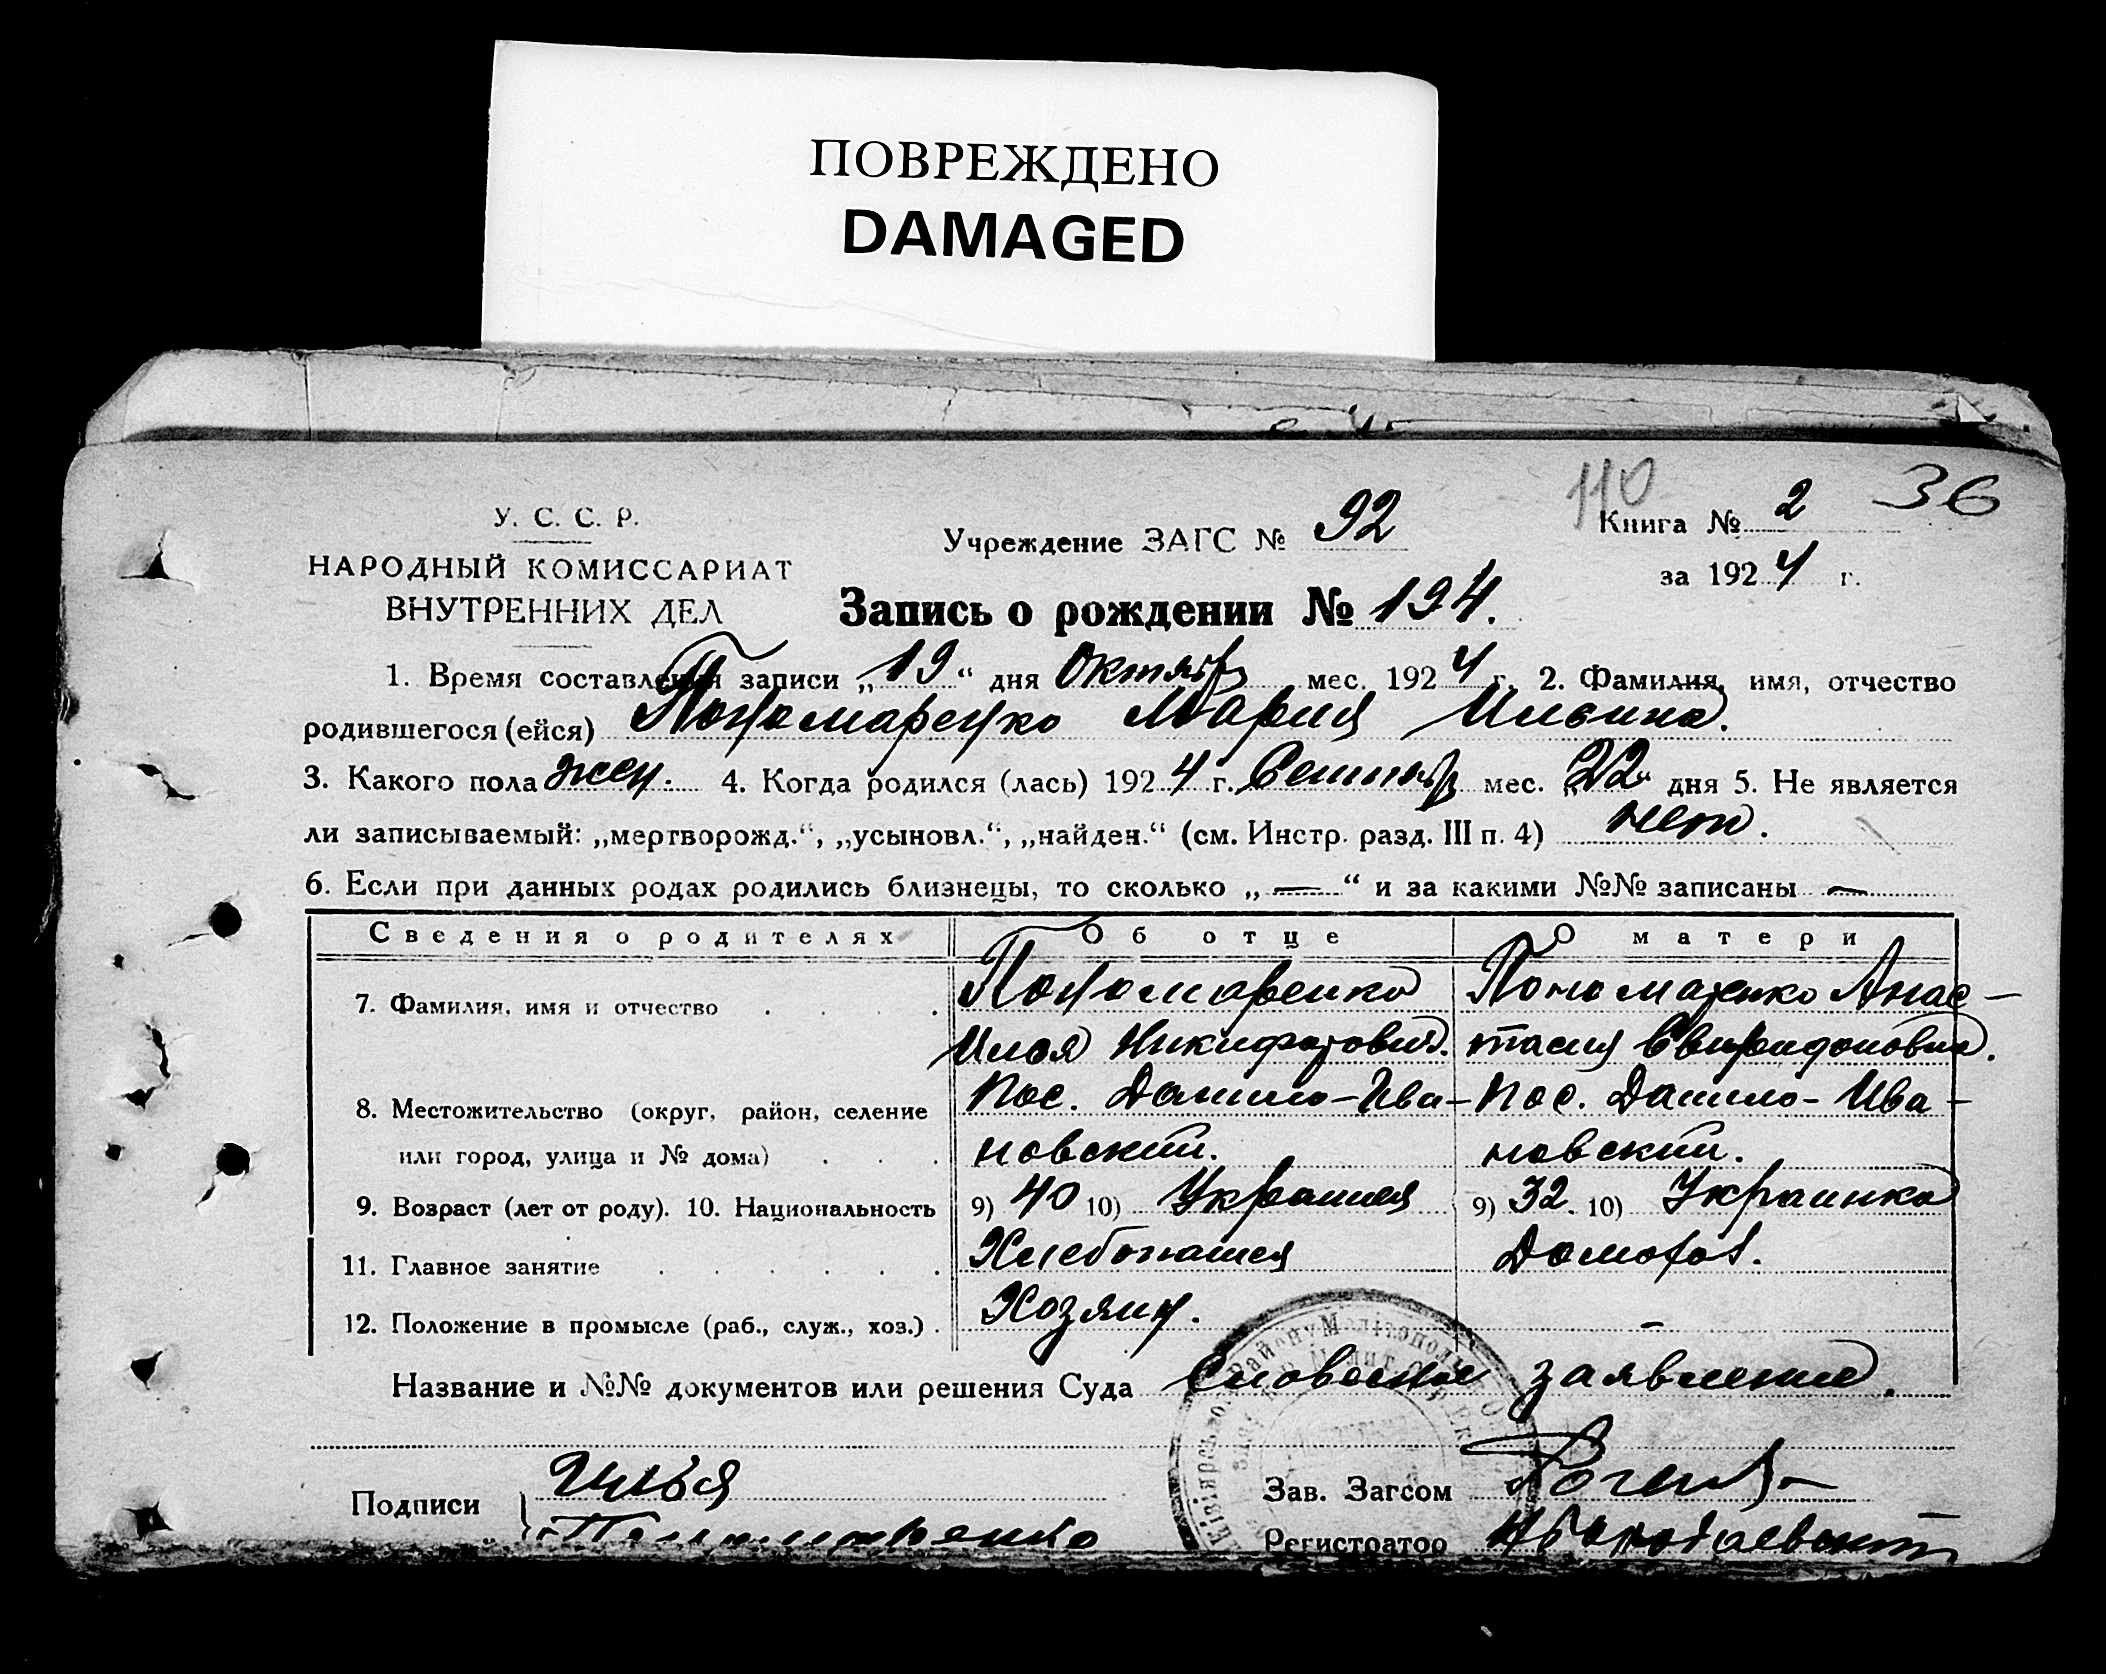 ПОВРЕЖДЕНО
DAMAGED
110 36
У. С. С. Р.
НАРОДНЫЙ КОМИССАРИАТ
ВНУТРЕННИХ ДЕЛ
Учреждение ЗАГС № 92
Книга № 2
за 1924 г.
Запись о рождении № 194.
1. Время составления записи „19“ дня Октябр мес. 1924 г. 2. Фамилия, имя, отчество
родившегося (ейся) Пономаренко Мария Ильина.
3. Какого пола жен. 4. Когда родился (лась) 1924 г. Сентябр мес. „22“ дня 5. Не является
ли записываемый: „мертворожд.“, „усыновл.“, „найден.“ (см. Инстр. разд. III п. 4) нет.
6. Если при данных родах родились близнецы, то сколько „—“ и за какими №№ записаны —
Сведения о родителях Об отце О матери
7. Фамилия, имя и отчество Пономаренко Пономаренко Анас-
Илья Никифорович. тасия Свиридоновна.
8. Местожительство (округ, район, селение Пос. Данило-Ива- Пос. Данило-Ива-
или город, улица и № дома) новский. новский.
9. Возраст (лет от роду). 10. Национальность 9) 40 10) Украинец 9) 32. 10) Украинка
11. Главное занятие Хлебопашец Домохоз.
12. Положение в промысле (раб., служ., хоз.) Хозяин. —
Название и №№ документов или решения Суда Словесное заявление.
Подписи Илья
Пономаренко
Зав. Загсом
Регистратор